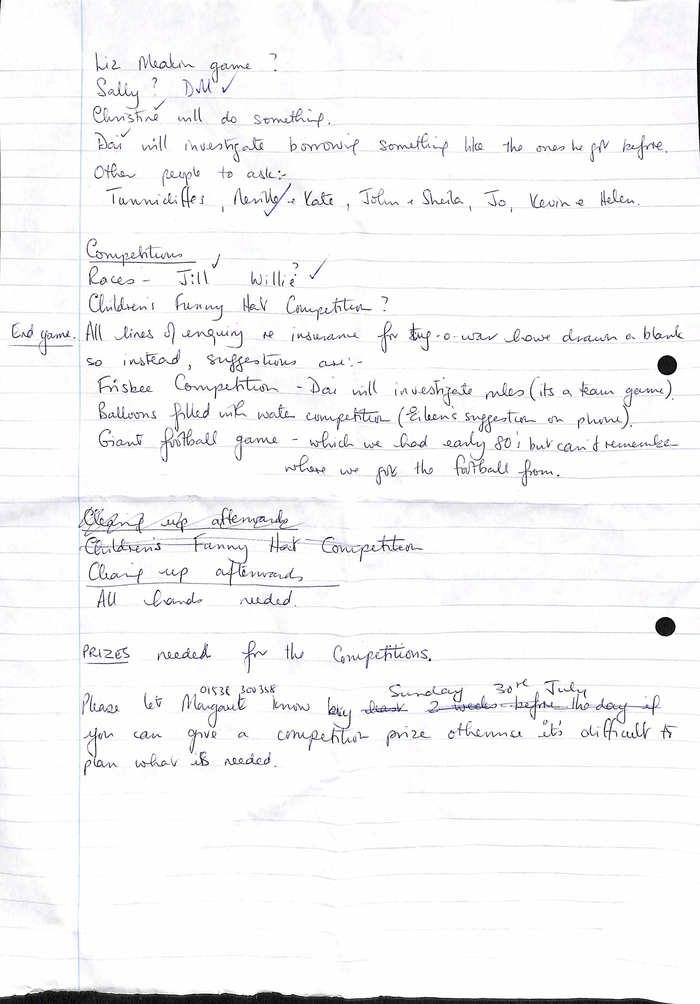 Liz Meakin game ?
Sally ? DM ✓
Christine ✓ will do something.
Dai ✓ will investigate borrowing something like the ones he got before.
Other people to ask:-
Tunnicliffes, Neville ✓ + Kate, John + Sheila, Jo, Kevin + Helen.
Competitions
Races - Jill ✓ Willie ? ✓
Children's Funny Hat Competition ?
End game. All lines of enquiry re insurance for tug-o-war have drawn a blank
so instead, suggestions are:-
Frisbee Competition - Dai will investigate rules (its a team game)
Balloons filled with water competition (Eileen's suggestion on phone).
Giant football game - which we had early 80's but can't remember
where we got the football from.
Clearing up afterwards
Children's Funny Hat Competition
Clearing up afterwards
All hands needed.
PRIZES needed for the Competitions.
01538 300358 Sunday 30th July
Please let Margaret know by least 2 weeks before the day if
you can give a competition prize otherwise it's difficult to
plan what is needed.